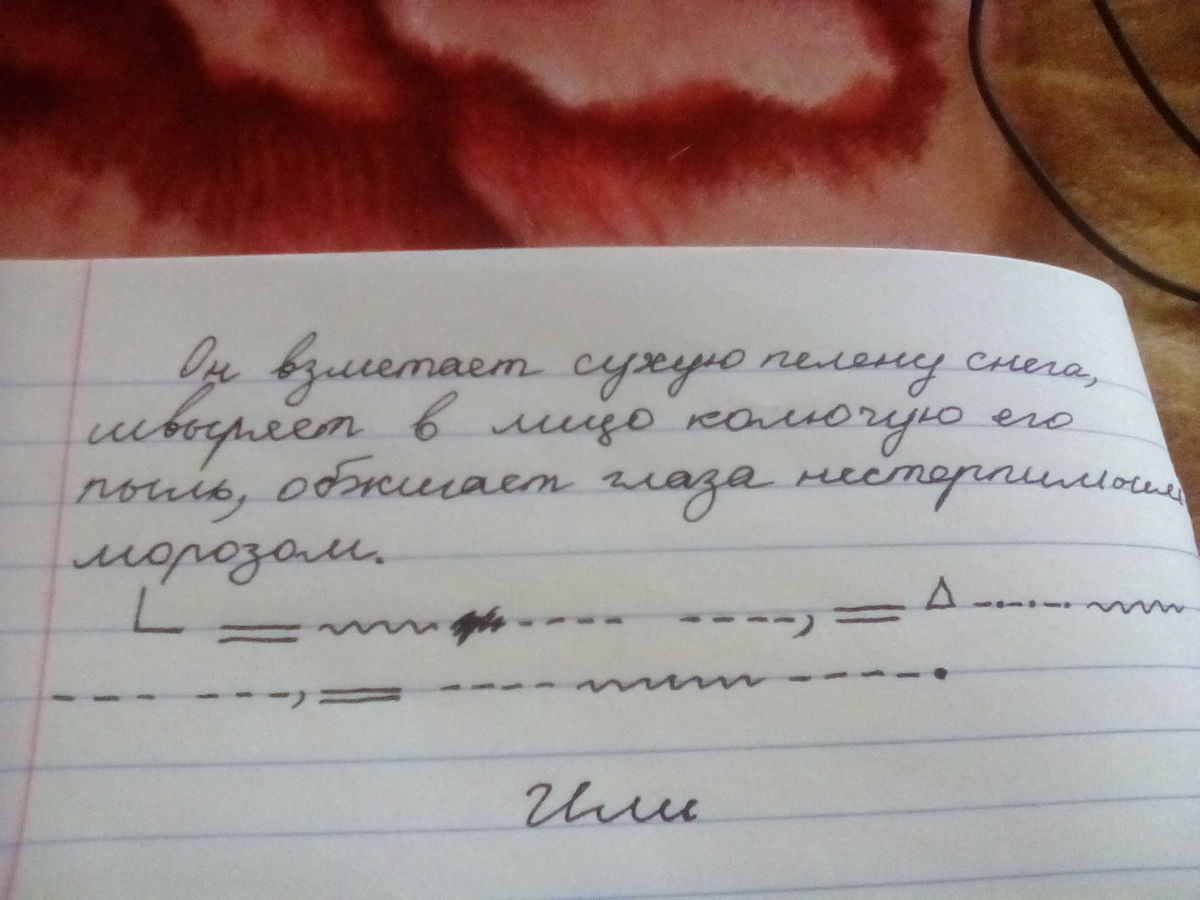 Он взметает сухую пелену снега,
швыряет в лицо колючую его
пыль, обжигает глаза нестерпимым
морозом.
Или